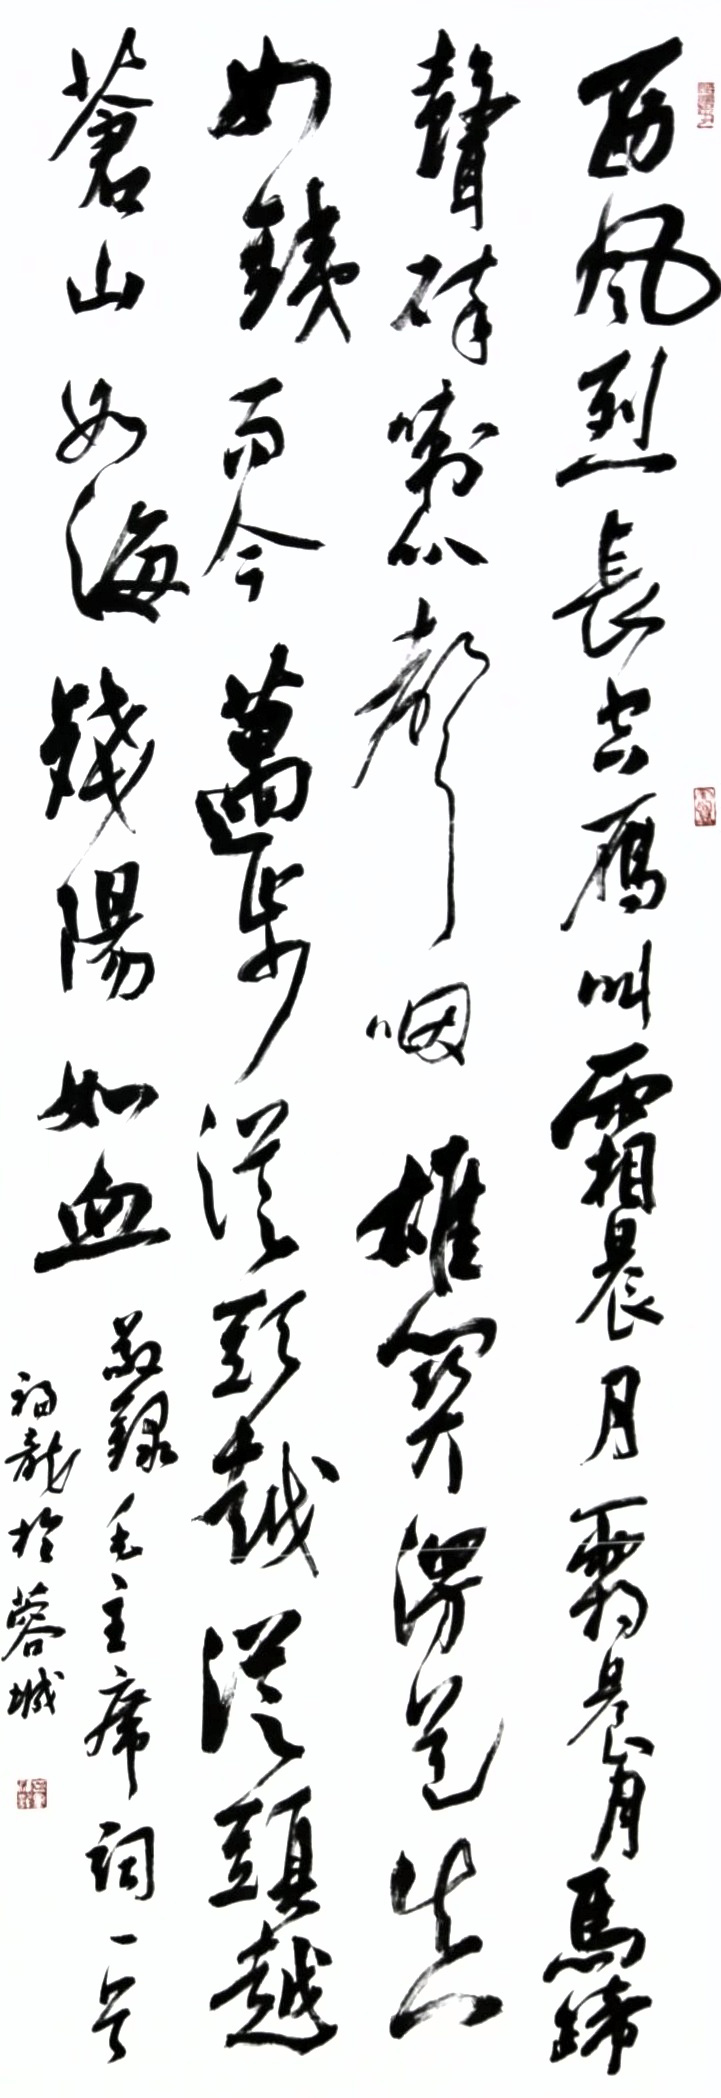 西風烈長空雁叫霜晨月霜晨月馬蹄
聲碎喇叭聲咽雄關漫道真
如鐵而今邁步從頭越從頭越
蒼山如海殘陽如血
敬錄毛主席詞一首
福龍於蓉城